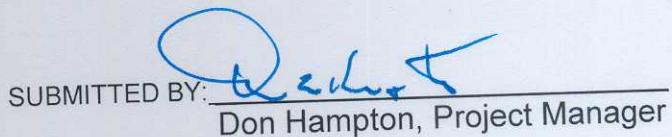 SUBMITTED BY:
Don Hampton, Project Manager